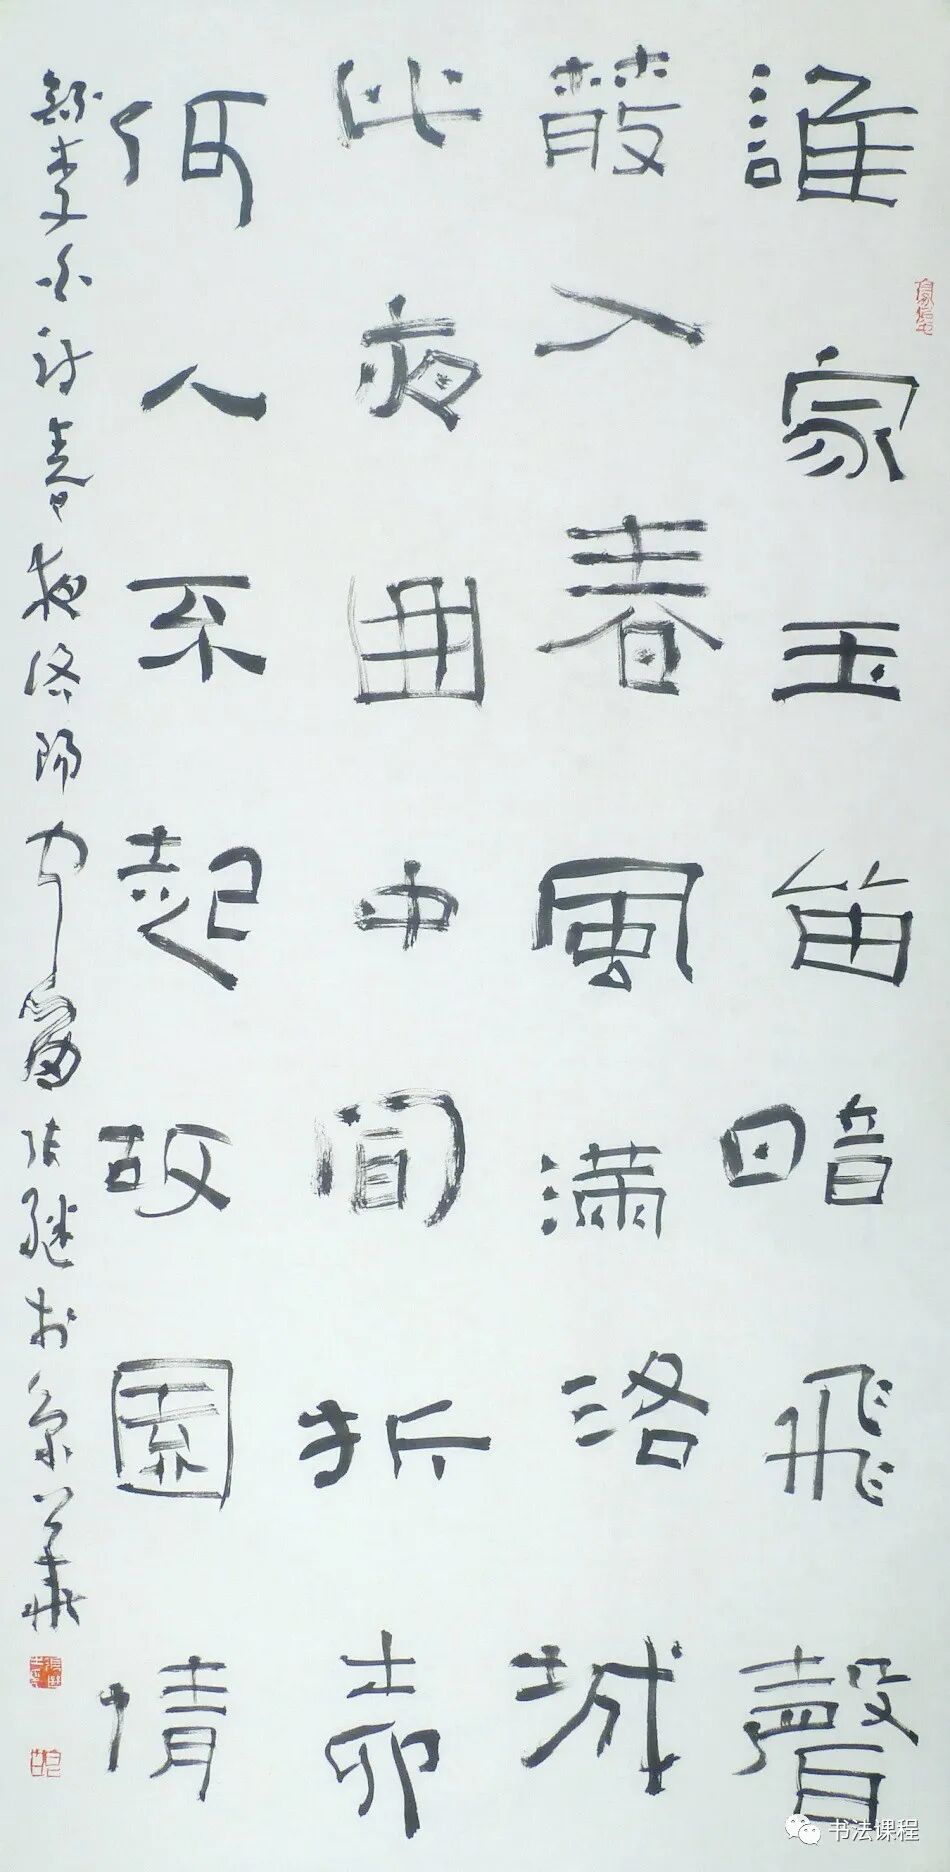 誰家玉笛暗飛聲
散入春風滿洛城
此夜曲中聞折柳
何人不起故園情
錄李白詩春夜洛陽聞笛張繼於京華
书法课程